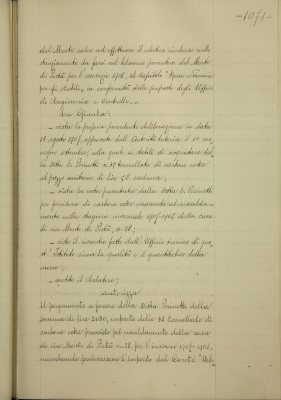 -1071-
del Monte salvo ad effettuare il relativo rimborso sullo
stanziamento da farsi nel bilancio preventivo del Monte
di Pietà per l'esercizio 1908, al capitolo "Spese ordinarie
per gli stabili", in conformità delle proposte degli Uffici
di Ragioneria e Controllo.
La Giunta:
- vista la propria precedente deliberazione in data
19 agosto 1907, approvata dall'Autorità tutoria il 10 suc-
cessivo ottobre, colla quale si stabilì di acquistare dal-
la Ditta G. Perinetti n. 35 tonnellate di carbone coke
al prezzo unitario di lire 58 caduna;
- vista la nota presentata dalla Ditta G. Perinetti
per fornitura di carbone coke occorrente al riscalda-
mento nella stagione invernale 1907-1908 della casa
di via Monte di Pietà, n. 28;
- visto il riscontro fatto dall'Ufficio tecnico di que-
st'Istituto circa la qualità e il quantitativo della
merce;
- sentito il Relatore;
autorizza
il pagamento a favore della Ditta Perinetti della
somma di lire 2030, importo delle 35 tonnellate di
carbone coke provviste pel riscaldamento della casa
di via Monte di Pietà n. 28, per l'inverno 1907-1908,
mandando prelevarsene l'importo dal Conto